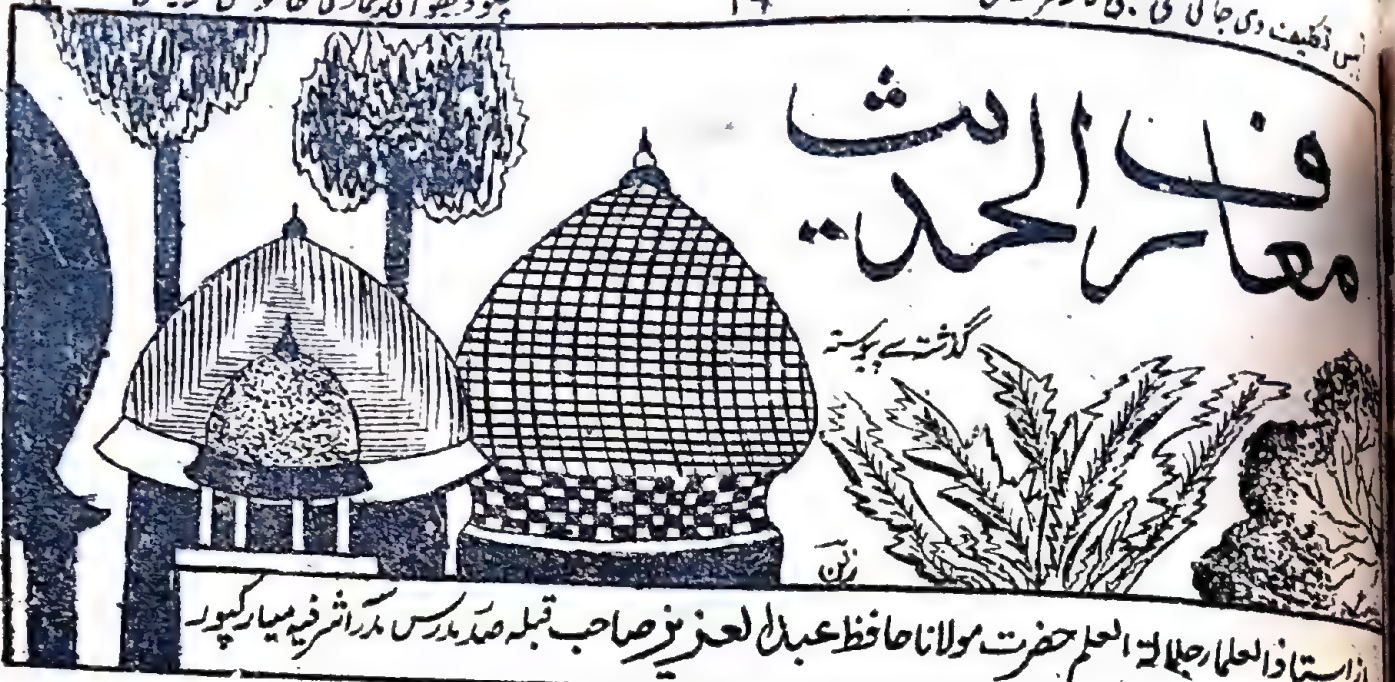 ۱۴
معارف الحدیث
گذشتہ سے پیوستہ
از استاذ العلماء جلالۃ العلم حضرت مولانا حافظ عبد العزیز صاحب قبلہ صدر مدرس مدرسہ اشرفیہ مبارکپور